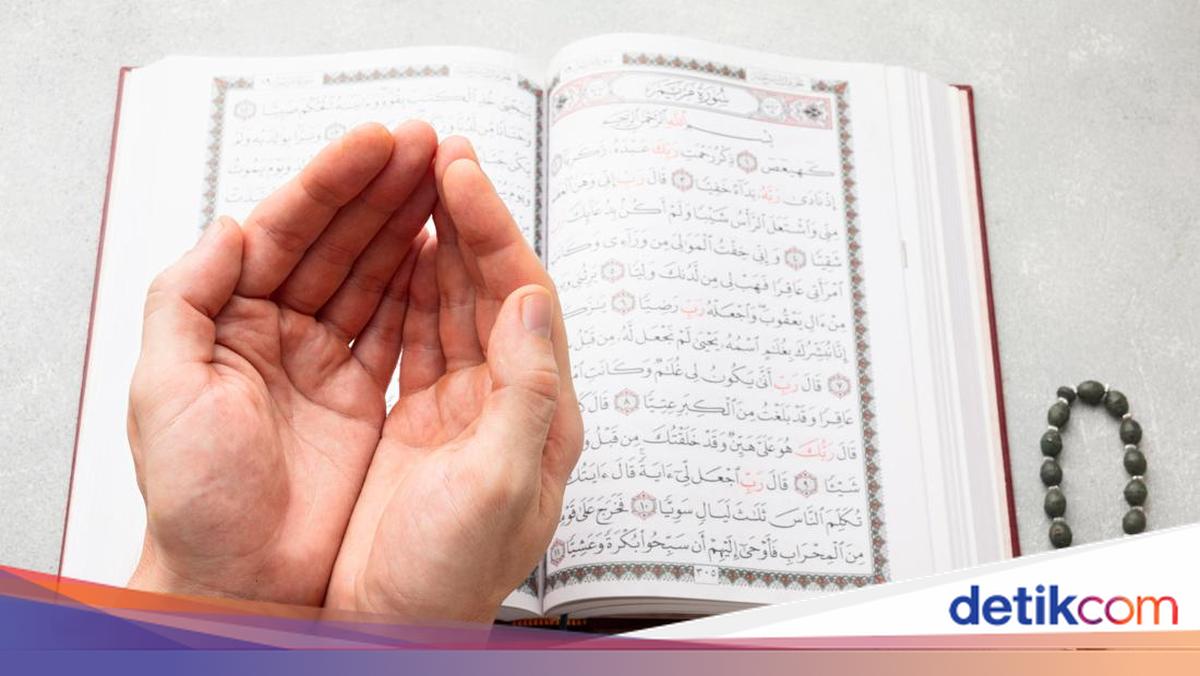 سُورَةُ مَرْيَمَ
بِسْمِ ٱللَّهِ ٱلرَّحْمَٰنِ ٱلرَّحِيمِ
كٓهيعٓصٓ ١ ذِكْرُ رَحْمَتِ رَبِّكَ عَبْدَهُۥ زَكَرِيَّآ
إِذْ نَادَىٰ رَبَّهُۥ نِدَآءً خَفِيًّا ٣ قَالَ رَبِّ إِنِّى وَهَنَ
مِنِّى وَٱشْتَعَلَ ٱلرَّأْسُ شَيْبًا وَلَمْ أَكُنۢ بِدُعَآئِكَ
شَقِيًّا ٤ وَإِنِّى خِفْتُ ٱلْمَوَٰلِىَ مِن وَرَآءِى
ٱمْرَأَتِى عَاقِرًا فَهَبْ لِى مِن لَّدُنكَ وَلِيًّا ٥ يَرِثُنِى
مِنْ ءَالِ يَعْقُوبَ وَٱجْعَلْهُ رَبِّ رَضِيًّا ٦
إِنَّا نُبَشِّرُكَ بِغُلَٰمٍ ٱسْمُهُۥ يَحْيَىٰ لَمْ نَجْعَل لَّهُۥ مِن قَبْلُ
٧ قَالَ رَبِّ أَنَّىٰ يَكُونُ لِى غُلَٰمٌ وَكَانَتِ
عَاقِرًا وَقَدْ بَلَغْتُ مِنَ ٱلْكِبَرِ عِتِيًّا ٨ قَالَ
قَالَ رَبُّكَ هُوَ عَلَىَّ هَيِّنٌ وَقَدْ خَلَقْتُكَ مِن قَبْلُ
شَيْـًٔا ٩ قَالَ رَبِّ ٱجْعَل لِّىٓ ءَايَةً قَالَ ءَايَتُكَ
تُكَلِّمَ ٱلنَّاسَ ثَلَٰثَ لَيَالٍ سَوِيًّا ١٠ فَخَرَجَ عَلَىٰ
مِنَ ٱلْمِحْرَابِ فَأَوْحَىٰٓ إِلَيْهِمْ أَن سَبِّحُوا۟ بُكْرَةً وَعَشِيًّا ١١
٣٠٥
خُذِ ٱلْكِتَٰبَ بِقُوَّةٍ وَءَاتَيْنَٰهُ ٱلْحُكْمَ صَبِيًّا
وَحَنَانًا مِّن لَّدُنَّا
وَبَرًّۢا بِوَٰلِدَيْهِ وَلَمْ
يَكُن
وَيَوْمَ يَمُوتُ
detikcom